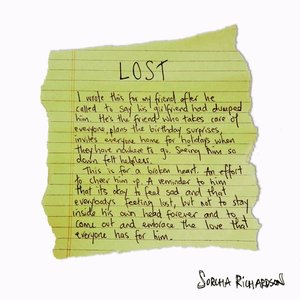 LOST
I wrote this for my friend after he
called to say his girlfriend had dumped
him. He's the friend who takes care of
everyone, plans the birthday surprises,
invites everyone home for holidays when
they have nowhere to go. Seeing him so
down felt helpless.
This is for a broken heart. An effort
to cheer him up. A reminder to him
that its okay to feel sad and that
everybodys feeling lost, but not to stay
inside his own head forever and to
come out and embrace the love that
everyone has for him.
SORCHA RICHARDSON